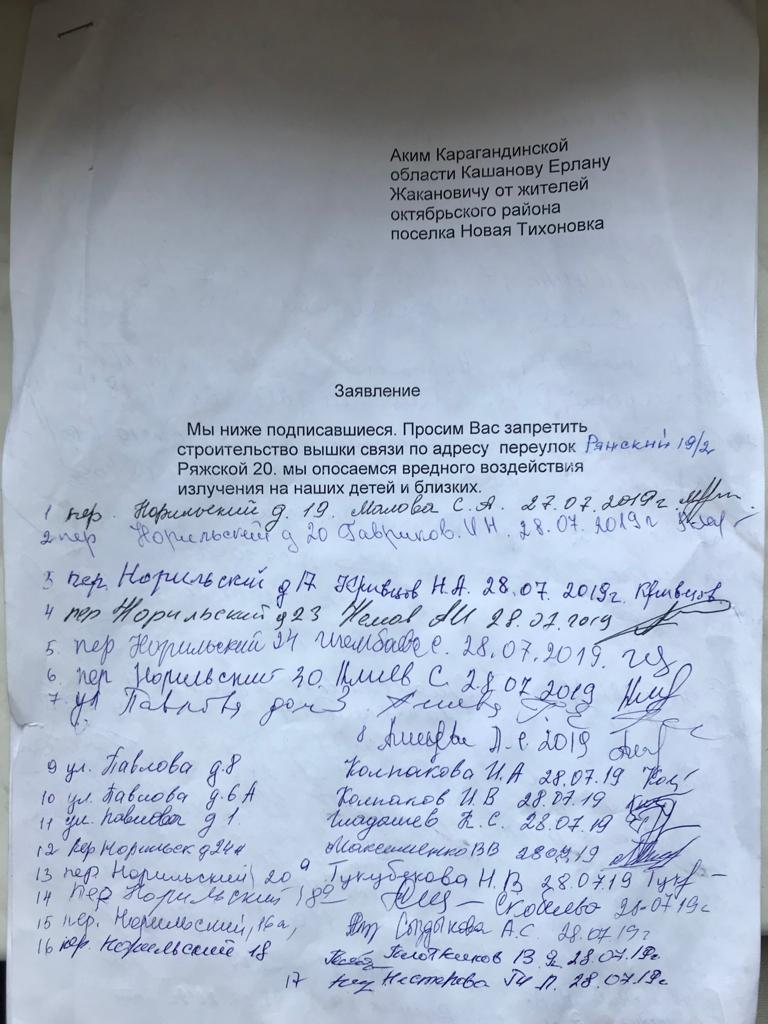 Аким Карагандинской
области Кашанову Ерлану
Жакановичу от жителей
октябрьского района
поселка Новая Тихоновка
Заявление
Мы ниже подписавшиеся. Просим Вас запретить
строительство вышки связи по адресу переулок Ряжский 19/2
Ряжской 20. мы опосаемся вредного воздействия
излучения на наших детей и близких.
1 пер. Норильский д. 19. Малова С. А. 27.07.2019г.
2 пер Норильский д 20 Гавриков. И Н. 28.07. 2019г
3 пер. Норильский д 17 Кривцов Н.А. 28.07. 2019г. Кривцов
4 пер Норильский д 23 АИ 28.07.2019
5. пер Норильский 24 С. 28.07.2019.
6. пер Норильский 30. С. 28.07 2019
7 ул Павлова дом 3
8 2019
9 ул. Павлова д.8 Колпакова И.А 28.07.19
10 ул. Павлова д.6 А Колпаков И.В 28.07.19
11 ул. Павлова д 1. Гладышев К.С. 28.07.19
12 пер Норильск д 24а Максименко ВВ 28.07.19
13 пер. Норильский, 20а Н.В 28.07.19
14 пер. Норильский 28.07.19г
15 пер. Норильский, 16а, Сыздыкова А.С. 28.07.19г
16 пер. Норильский 18 Плотников В 28.07.19г
17 Нестерова 28.07.19г.